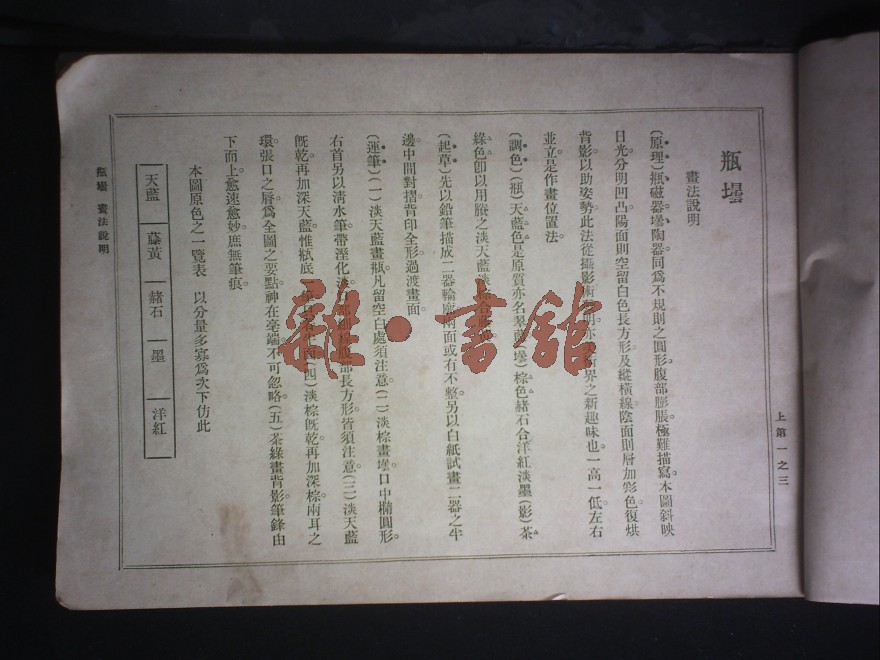 上第一之三
瓶壜
畫法說明
（原理）瓶磁器壜陶器同爲不規則之圓形腹部膨脹極難描寫本圖斜映
日光分明凹凸陽面則空留白色長方形及縱橫線陰面則層加彩色復烘
背影以助姿勢此法從攝影術 界之新趣味也一高一低左右
並立是作畫位置法。
（調色）（瓶）天藍色是原質亦名翠 （壜）棕色赭石合洋紅淡墨（影）茶
綠色卽以用賸之淡天藍淡棕合
（起草）先以鉛筆描成二器輪廓兩面或有不整另以白紙試畫二器之半
邊中間對摺背印全形過渡畫面。
（運筆）（一）淡天藍畫瓶凡留空白處須注意（二）淡棕畫壜口中橢圓形
右首另以淸水筆帶溼化 腹部長方形皆須注意（三）淡天藍
旣乾再加深天藍惟瓶底 （四）淡棕旣乾再加深棕兩耳之
環張口之脣爲全圖之要點神在毫端不可忽略（五）茶綠畫背影筆鋒由
下而上愈速愈妙庶無筆痕。
本圖原色之一覽表 以分量多寡爲次下仿此
天藍 藤黃 赭石 墨 洋紅
瓶壜 畫法說明
雜·書館